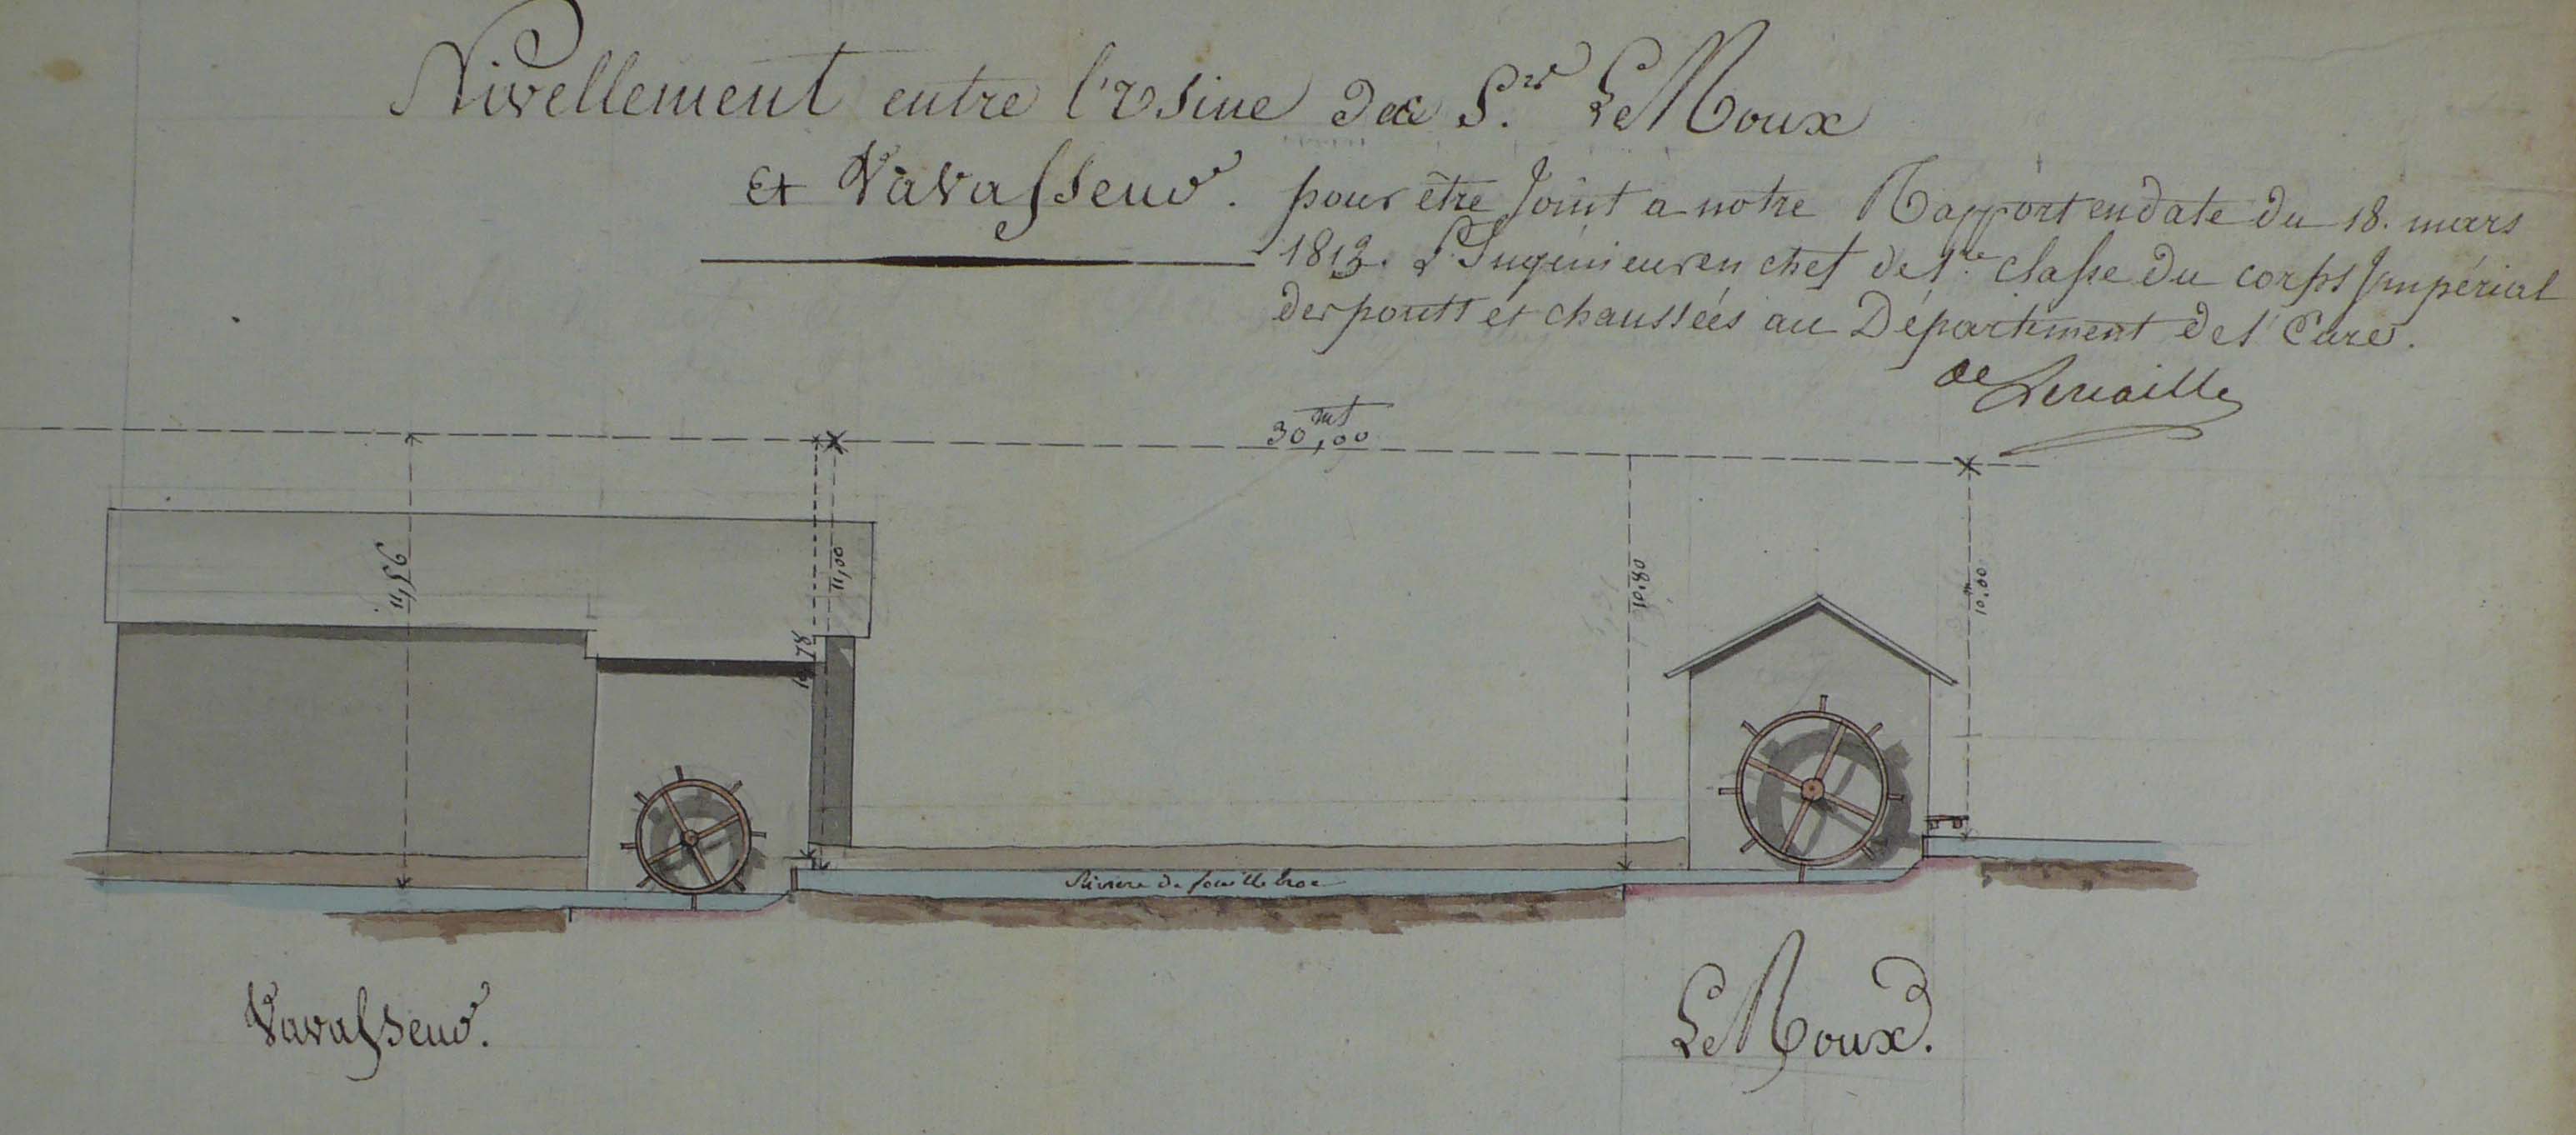 Nivellement entre l'Usine des S.rs Le Roux
et Vavasseur. pour être Joint a notre Rapport en date du 18. mars
1813. L'Ingénieur en chef de 1.re classe du corps Impérial
des ponts et chaussées au Département de l'Eure.
30,00 mt
11,56
11,00
10,78
10,80
10,00 m
Riviere de
Vavasseur.
Le Roux.